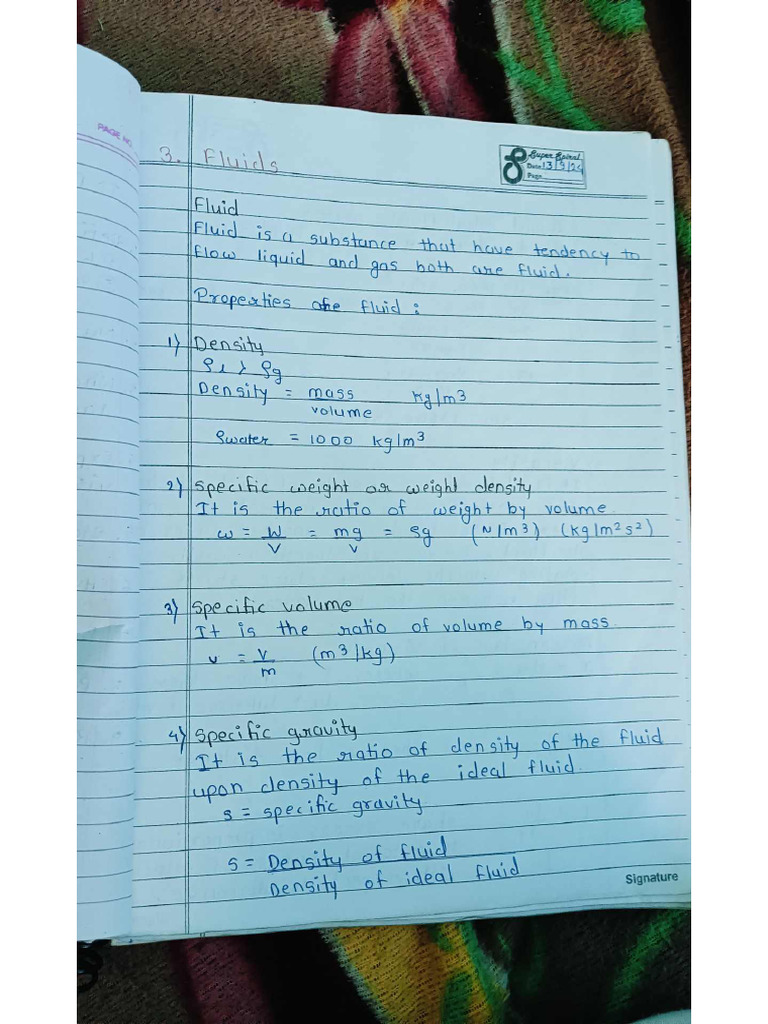 PAGE NO.
3. Fluids
Super Spiral
Date 13/9/24
Page
Fluid
Fluid is a substance that have tendency to
flow liquid and gas both are fluid.
Properties of fluid :
1) Density
ρL > ρg
Density = mass / volume kg/m3
ρwater = 1000 kg/m3
2) Specific weight or weight density
It is the ratio of weight by volume.
w = W/V = mg/V = ρg (N/m3) (kg/m2s2)
3) Specific volume
It is the ratio of volume by mass
v = V/m (m3/kg)
4) Specific gravity
It is the ratio of density of the fluid
upon density of the ideal fluid.
s = specific gravity
s = Density of fluid
Density of ideal fluid
Signature